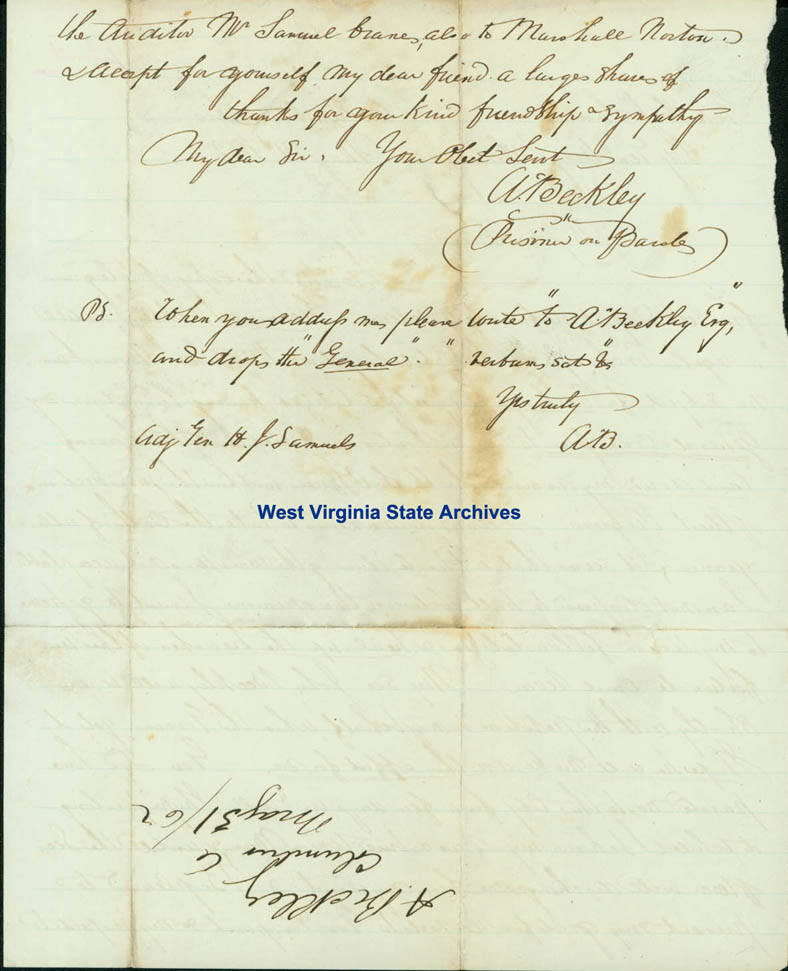 the Auditor Mr Samuel Crane, also to Marshall Norton.
& accept for yourself my dear friend a large share of
thanks for your kind friendship & sympathy
My dear Sir. Your Obet Servt
A. Beckley
(Prisoner on Parole)
PS. When you address me, please write "to A. Beckley Esq,"
and drop the "General". "verbum sat &c"
Yrs truly
A.B.
Adj Gen H. J. Samuels
West Virginia State Archives
A. Beckley
Columbus O
May 31/62